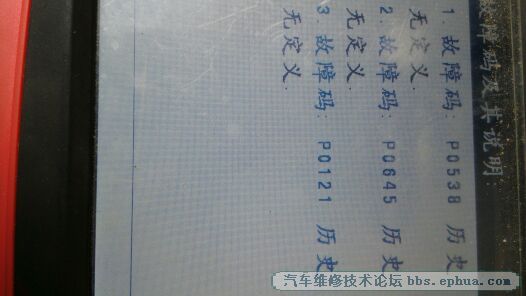 故障码及其说明:
1. 故障码: P0538 历史
无定义.
2. 故障码: P0645 历史
无定义.
3. 故障码: P0121 历史
无定义.
汽车维修技术论坛 bbs.ephua.com